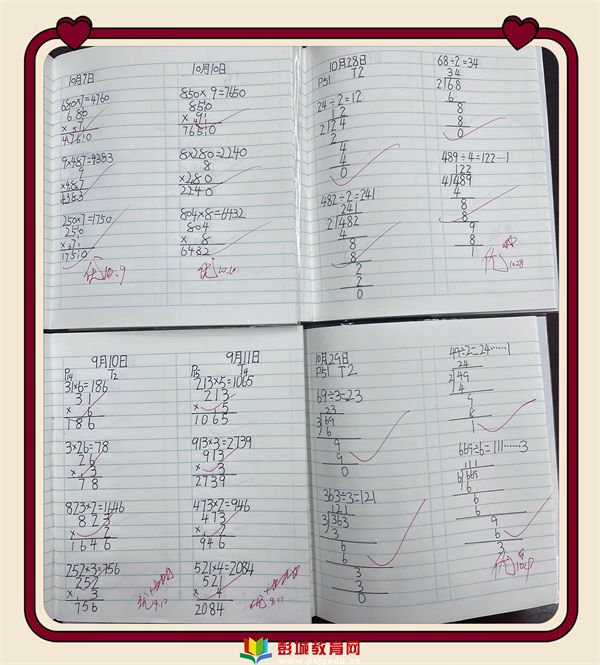 10月7日
680×7=4760
680
× 57
4760
9×487=4383
9
×487
4383
250×7=1750
250
× 37
1750
优10.9
10月10日
850×9=7650
850
× 49
7650
8×280=2240
8
×280
2240
804×8=6432
804
× 8
6432
优10.10
10月28日
P51 T2
24÷2=12
12
2√24
2
4
4
0
482÷2=241
241
2√482
4
8
8
2
2
0
68÷2=34
34
2√68
6
8
8
0
489÷4=122…1
122
4√489
4
8
8
9
8
1
优
1028
9月10日
P14 T2
31×6=186
31
× 6
186
3×26=78
26
× 3
78
823×2=1646
823
× 2
1646
252×3=756
252
× 3
756
优+
9.10
9月11日
P15 T4
213×5=1065
213
× 15
1065
913×3=2739
913
× 3
2739
473×2=946
473
× 2
946
521×4=2084
521
× 4
2084
优+
9.11
10月29日
P51 T2
69÷3=23
23
3√69
6
9
9
0
363÷3=121
121
3√363
3
6
6
3
3
0
49÷2=24……1
24
2√49
4
9
8
1
669÷6=111……3
111
6√669
6
6
6
9
6
3
优
彭城教育网
www.pcjyedu.cn